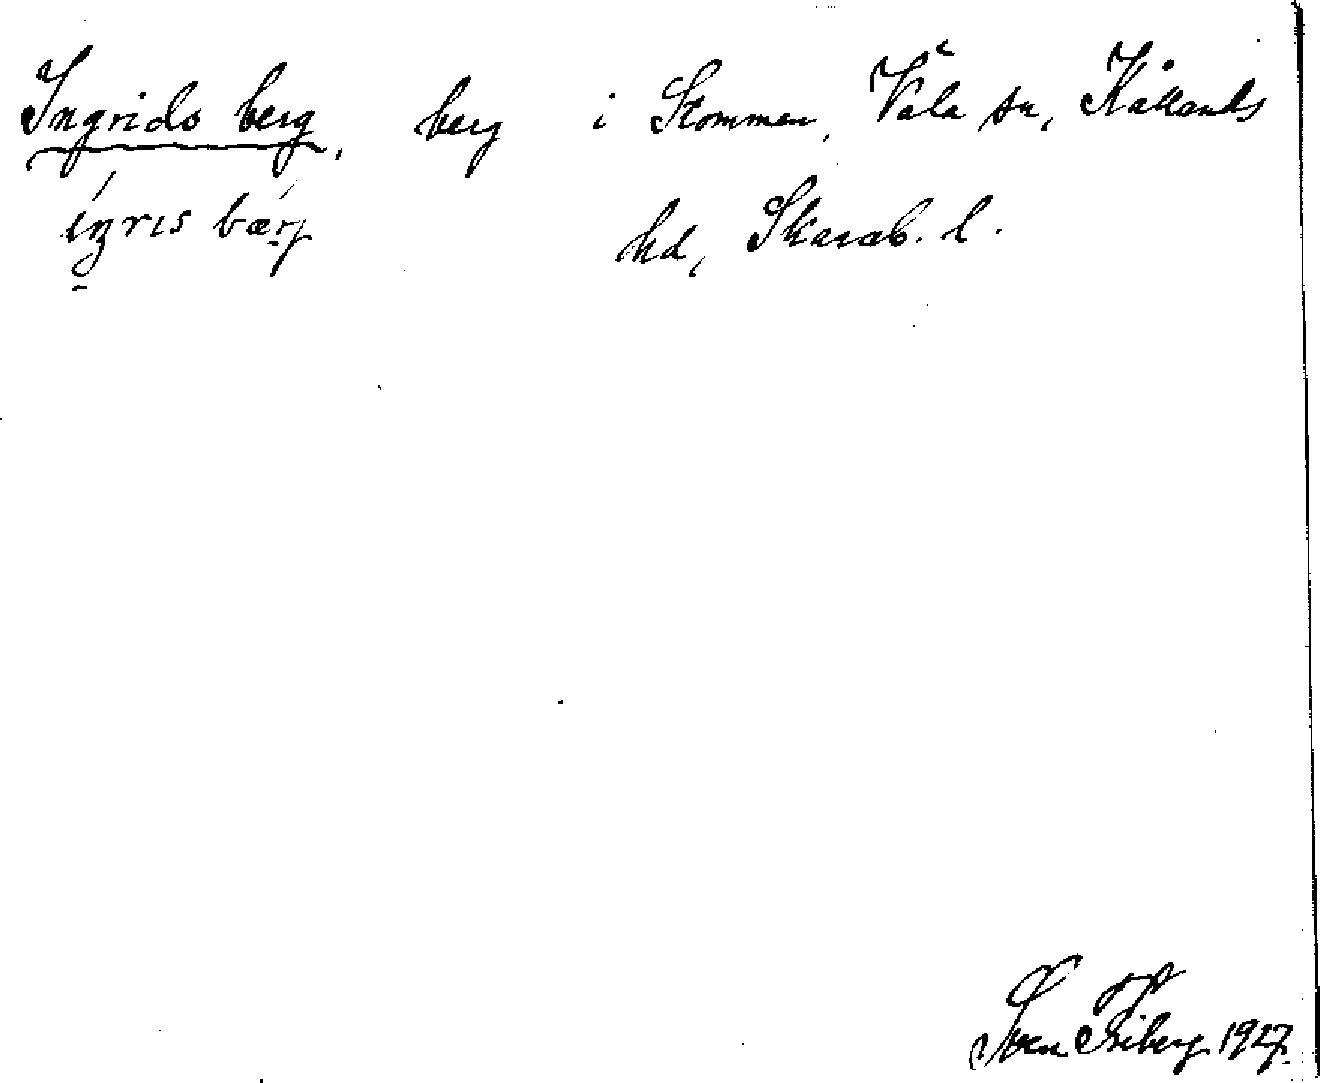 Ingrids berg, berg i Stommen, Väla sn, Kållands
hd, Skarab. l.
Sven Friberg 1927